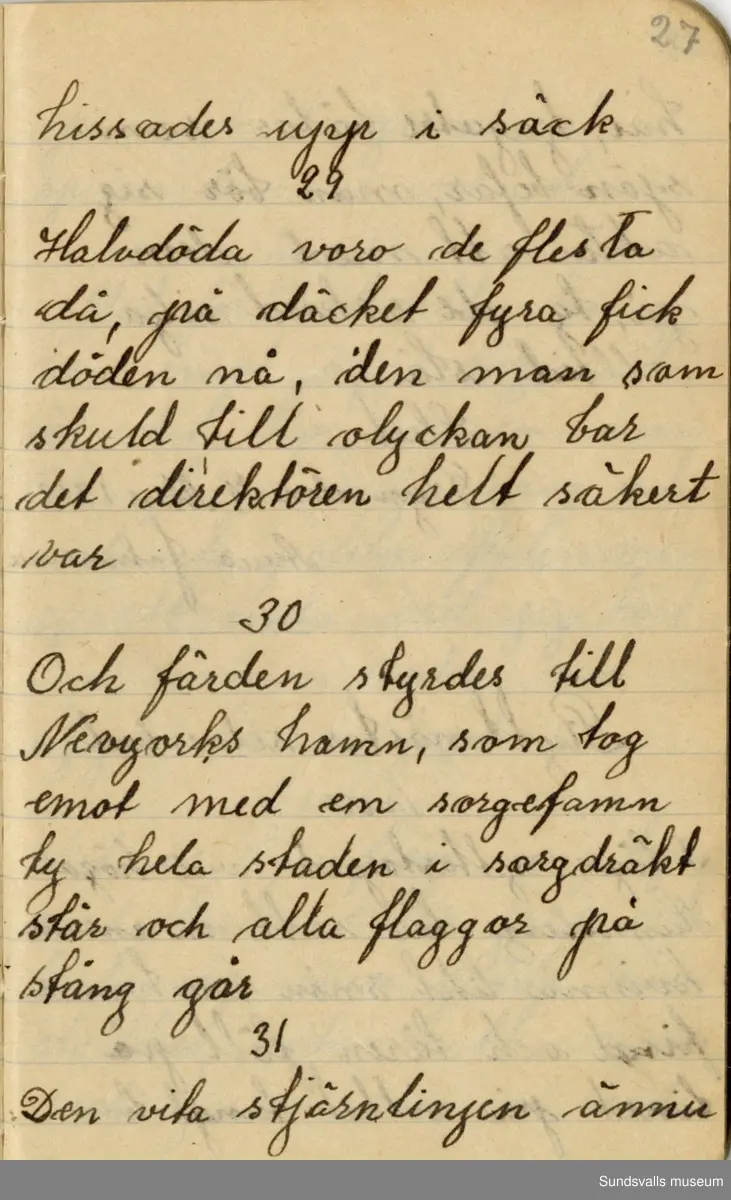 27
hissades upp i säck
29
Halvdöda voro de flesta
då, på däcket fyra fick
döden nå, den man som
skuld till olyckan bar
det direktören helt säkert
var
30
Och färden styrdes till
Nevyorks hamn, som tog
emot med en sorgefamn
ty hela staden i sorgdräkt
står och alla flaggor på
stång går
31
Den vita stjärnlinjen ännu
Sundsvalls museum